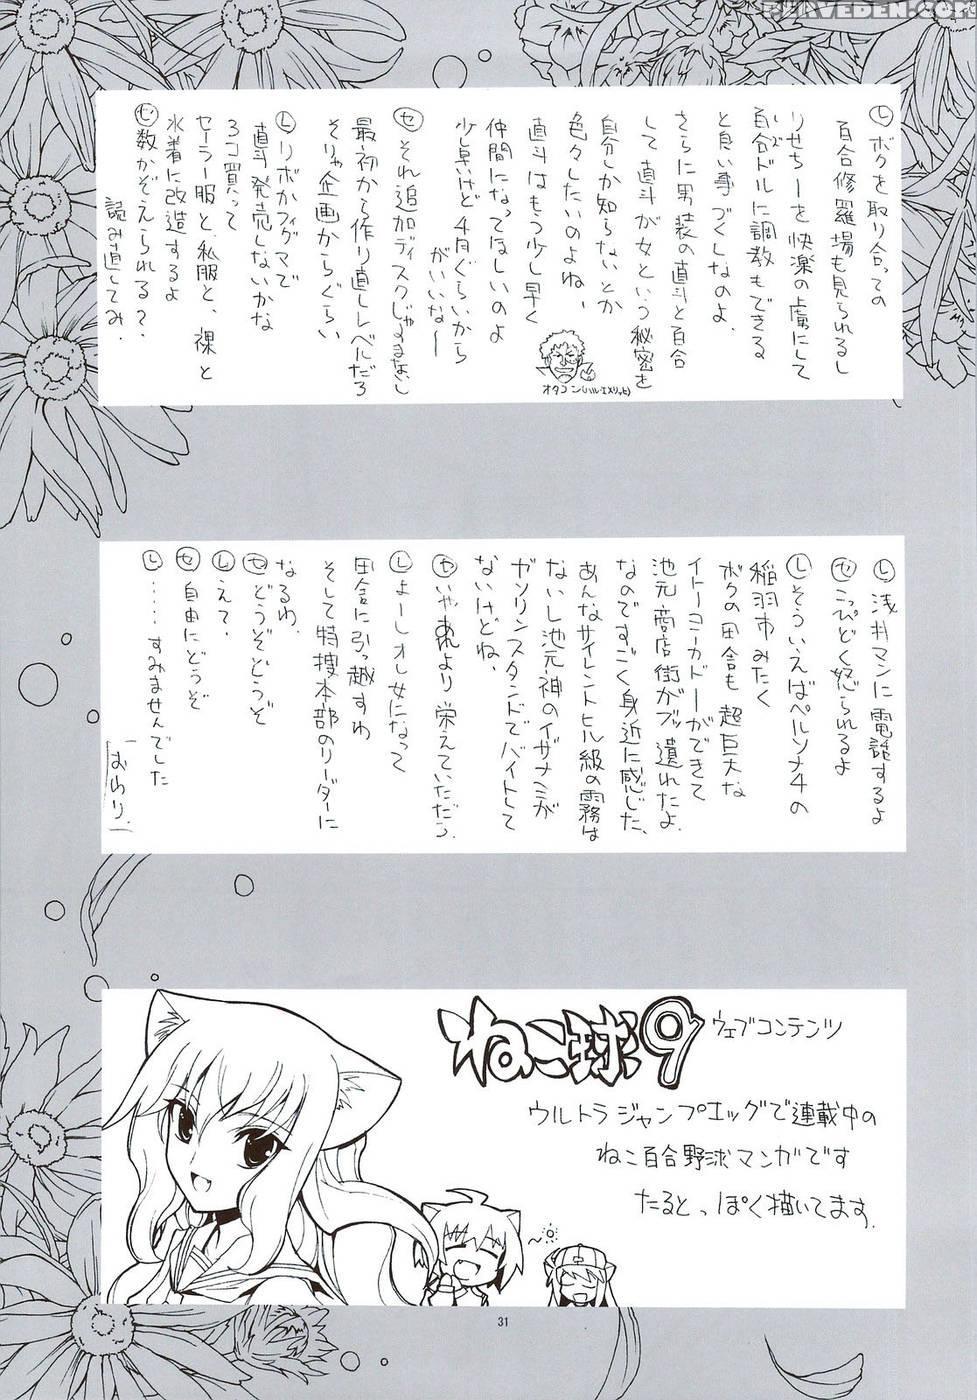 PERVEDEN.COM
Ⓛボクを取り合っての
百合修羅場も見られるし
りせちーを快楽の虜にして
百合ドルに調教もできる
と良い事づくしなのよ.
さらに男装の直斗と百合
して直斗が女という秘密を
自分しか知らないとか
色々したいのよね、
直斗はもう少し早く
仲間になってほしいのよ
少し臭いけど4月ぐらいから
がいいなー
オタコン(ハル・エメリッヒ)
㋝それ追加ディスクじゃすまないし
最初から作り直しレベルだろ
そりゃ企画からぐらい
Ⓛリボかフィグマで
直斗発売しないかな
3コ買って
セーラー服と、私服と、裸と
水着に改造するよ
㋝数かぞえられる?
読み直してみ
Ⓛ浅井マンに電話するよ
㋝こっぴどく怒られるよ
Ⓛそういえばペルソナ4の
稲羽市みたく
ボクの田舎も超巨大な
イトーヨーカドーができて
池元商店街がブッ潰れたよ.
なのですごく身近に感じた、
あんなサイレントヒル級の霧は
ないし池元神のイザナミが
ガソリンスタンドでバイトして
ないけどね、
㋝いやあれより栄えていただろ.
Ⓛよーしオレ女になって
田舎に引っ越すわ
そして特捜本部のリーダーに
なるわ.
㋝どうぞどうぞ
Ⓛえて.
㋝自由にどうぞ
Ⓛ.....すみませんでした
「おわり.」
ねこ球9
ウェブコンテンツ
ウルトラジャンプエッグで連載中の
ねこ百合野球マンガです
たるとっぽく描いてます.
31